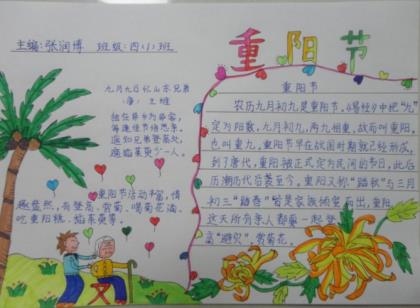 主编：张润博 班级：四(1)班
重阳节
九月九日忆山东兄弟
(唐) 王维
独在异乡为异客，
每逢佳节倍思亲。
遥知兄弟登高处，
遍插茱萸少一人。
重阳节活动丰富，情
趣盎然，有登高、赏菊、喝菊花酒、
吃重阳糕、插茱萸等。
重阳节
农历九月初九是重阳节，《易经》中把“九”
定为阳数，九月初九，两九相重，故而叫重阳，
也叫重九，重阳节早在战国时期就已经形成，
到了唐代，重阳被正式定为民间的节日，此后
历朝历代沿袭至今。重阳又称“踏秋”与三月
初三“踏春”皆是家族倾室而出，重阳
这天所有亲人都要一起登
高“避灾”，赏菊花。